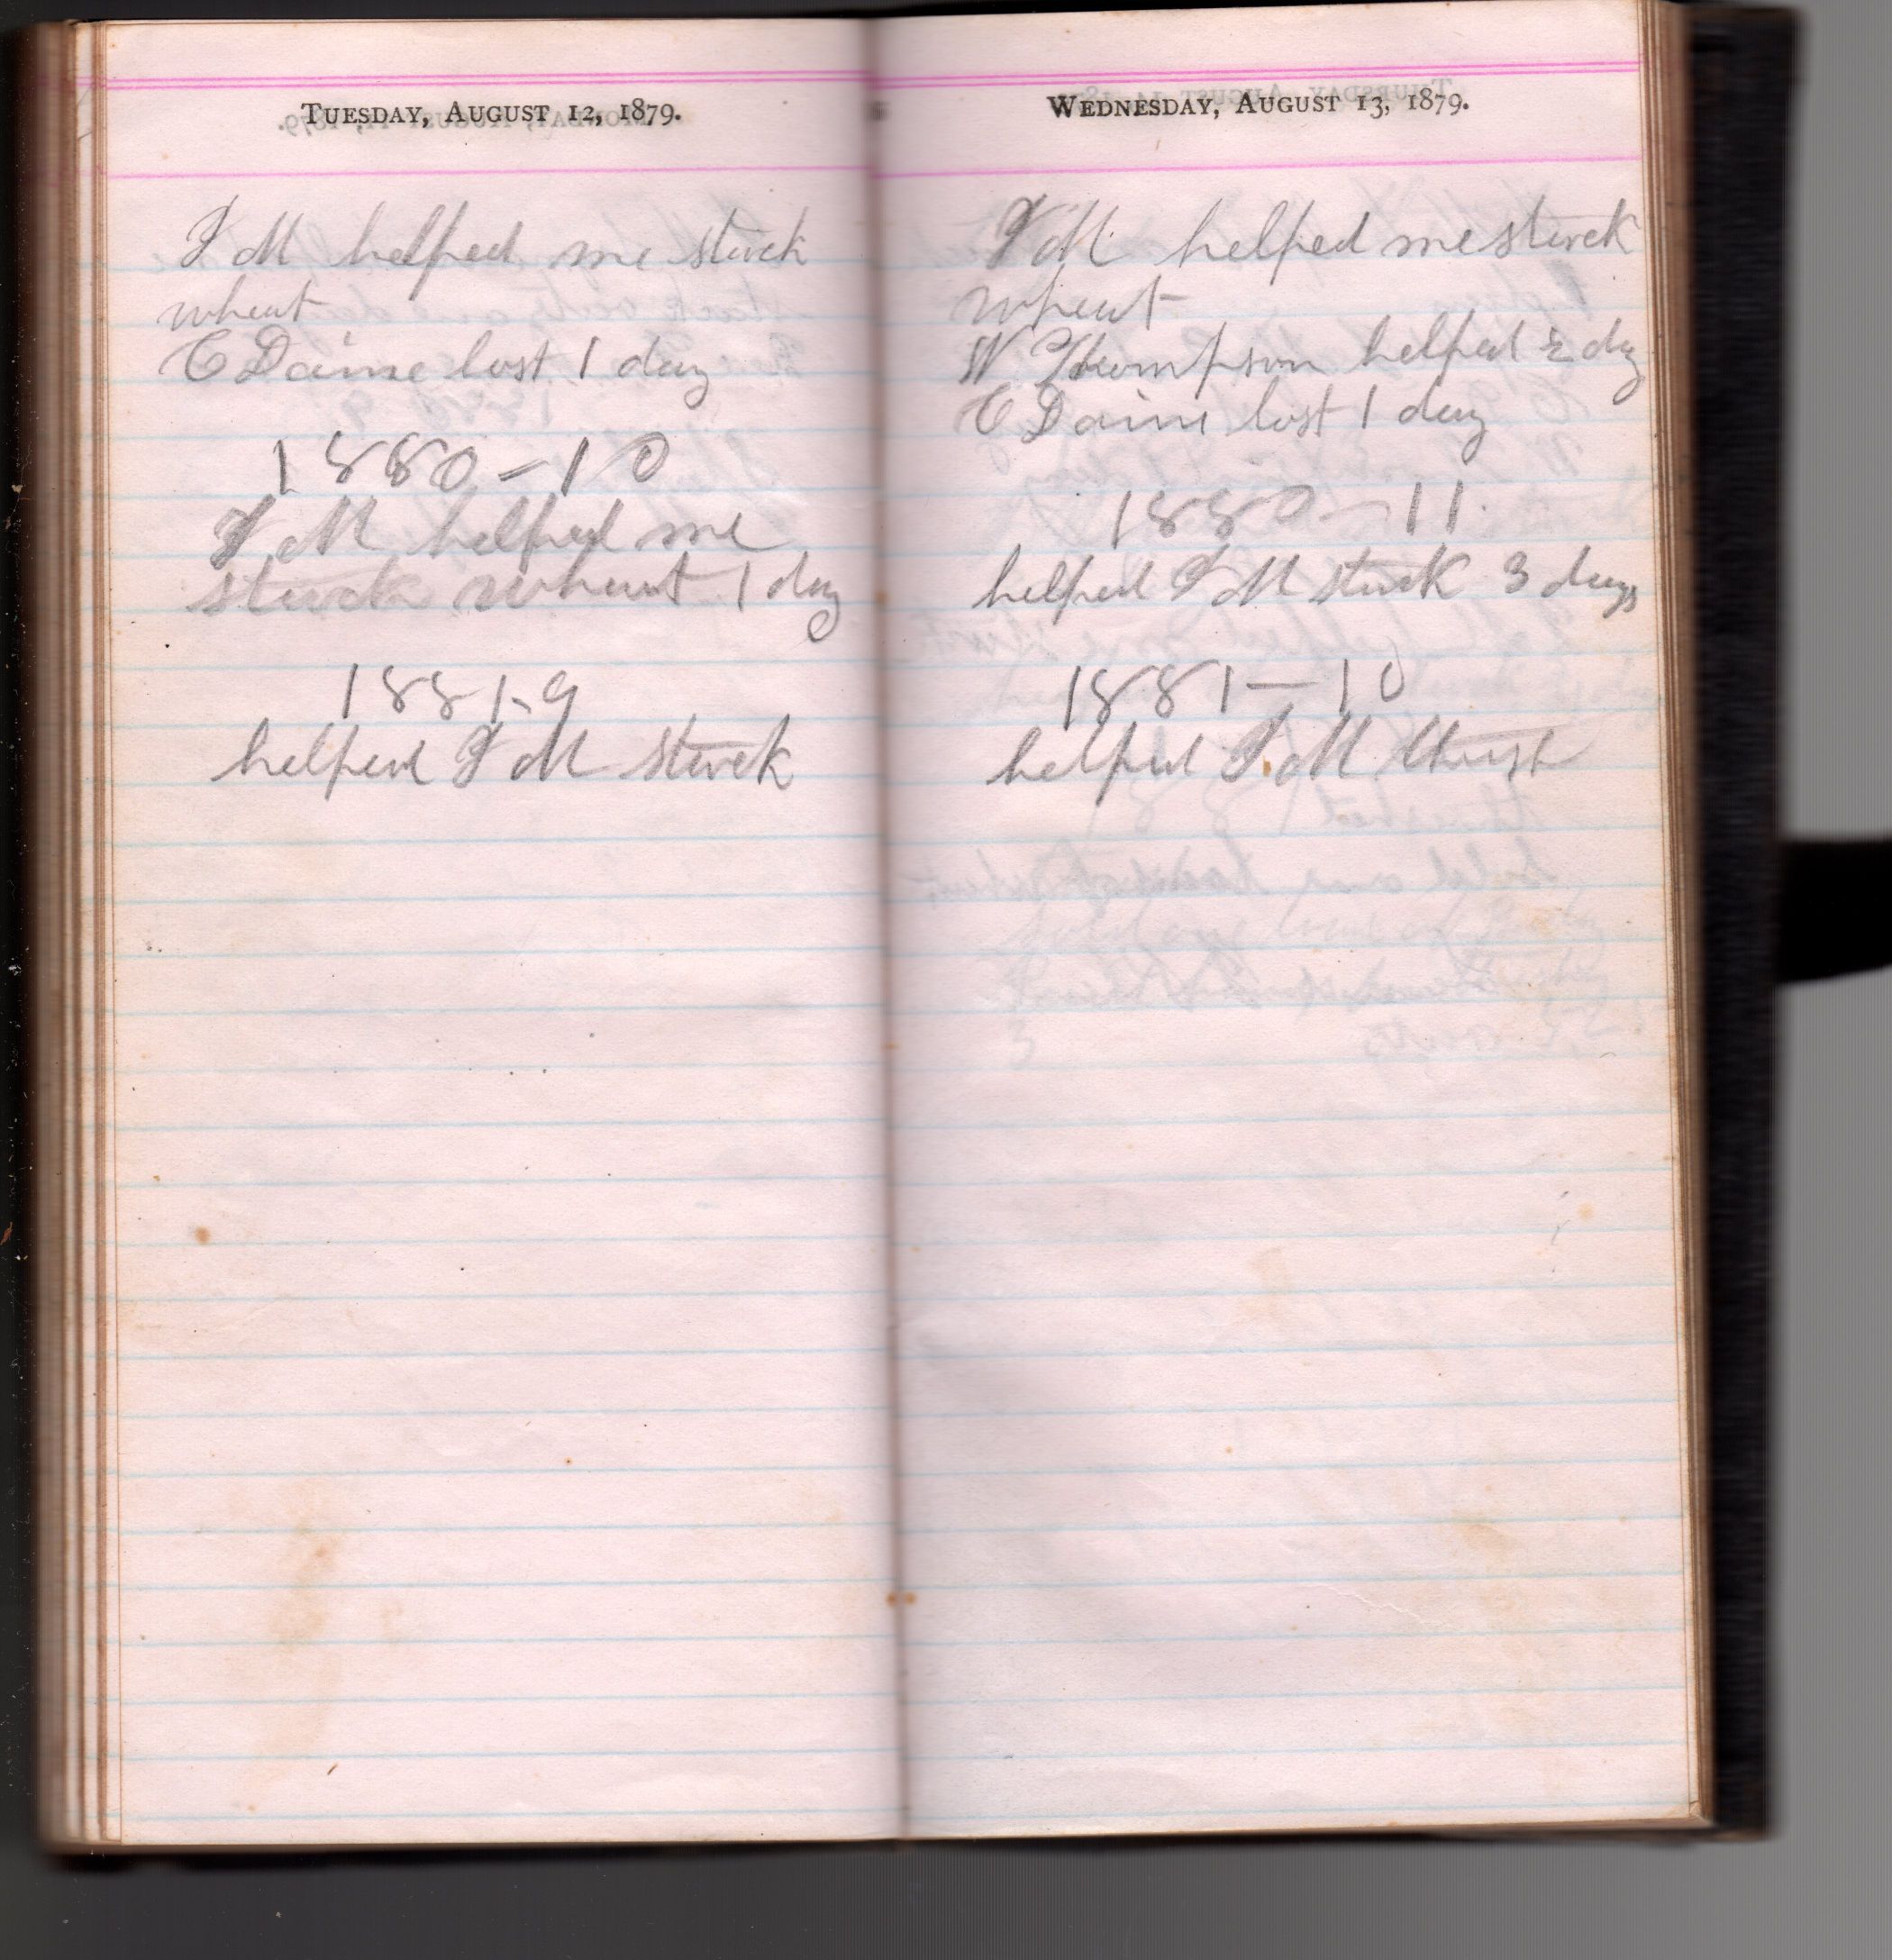 TUESDAY, AUGUST 12, 1879.
I M helped me stack
wheat
C Daine lost 1 day
1880-10
I M helped me
stack wheat 1 day
1881-9
helped I M stack
WEDNESDAY, AUGUST 13, 1879.
I M helped me stack
wheat
W Thompson helped ½ day
C Daine lost 1 day
1880-11
helped I M stack 3 days
1881-10
helped I M thrash